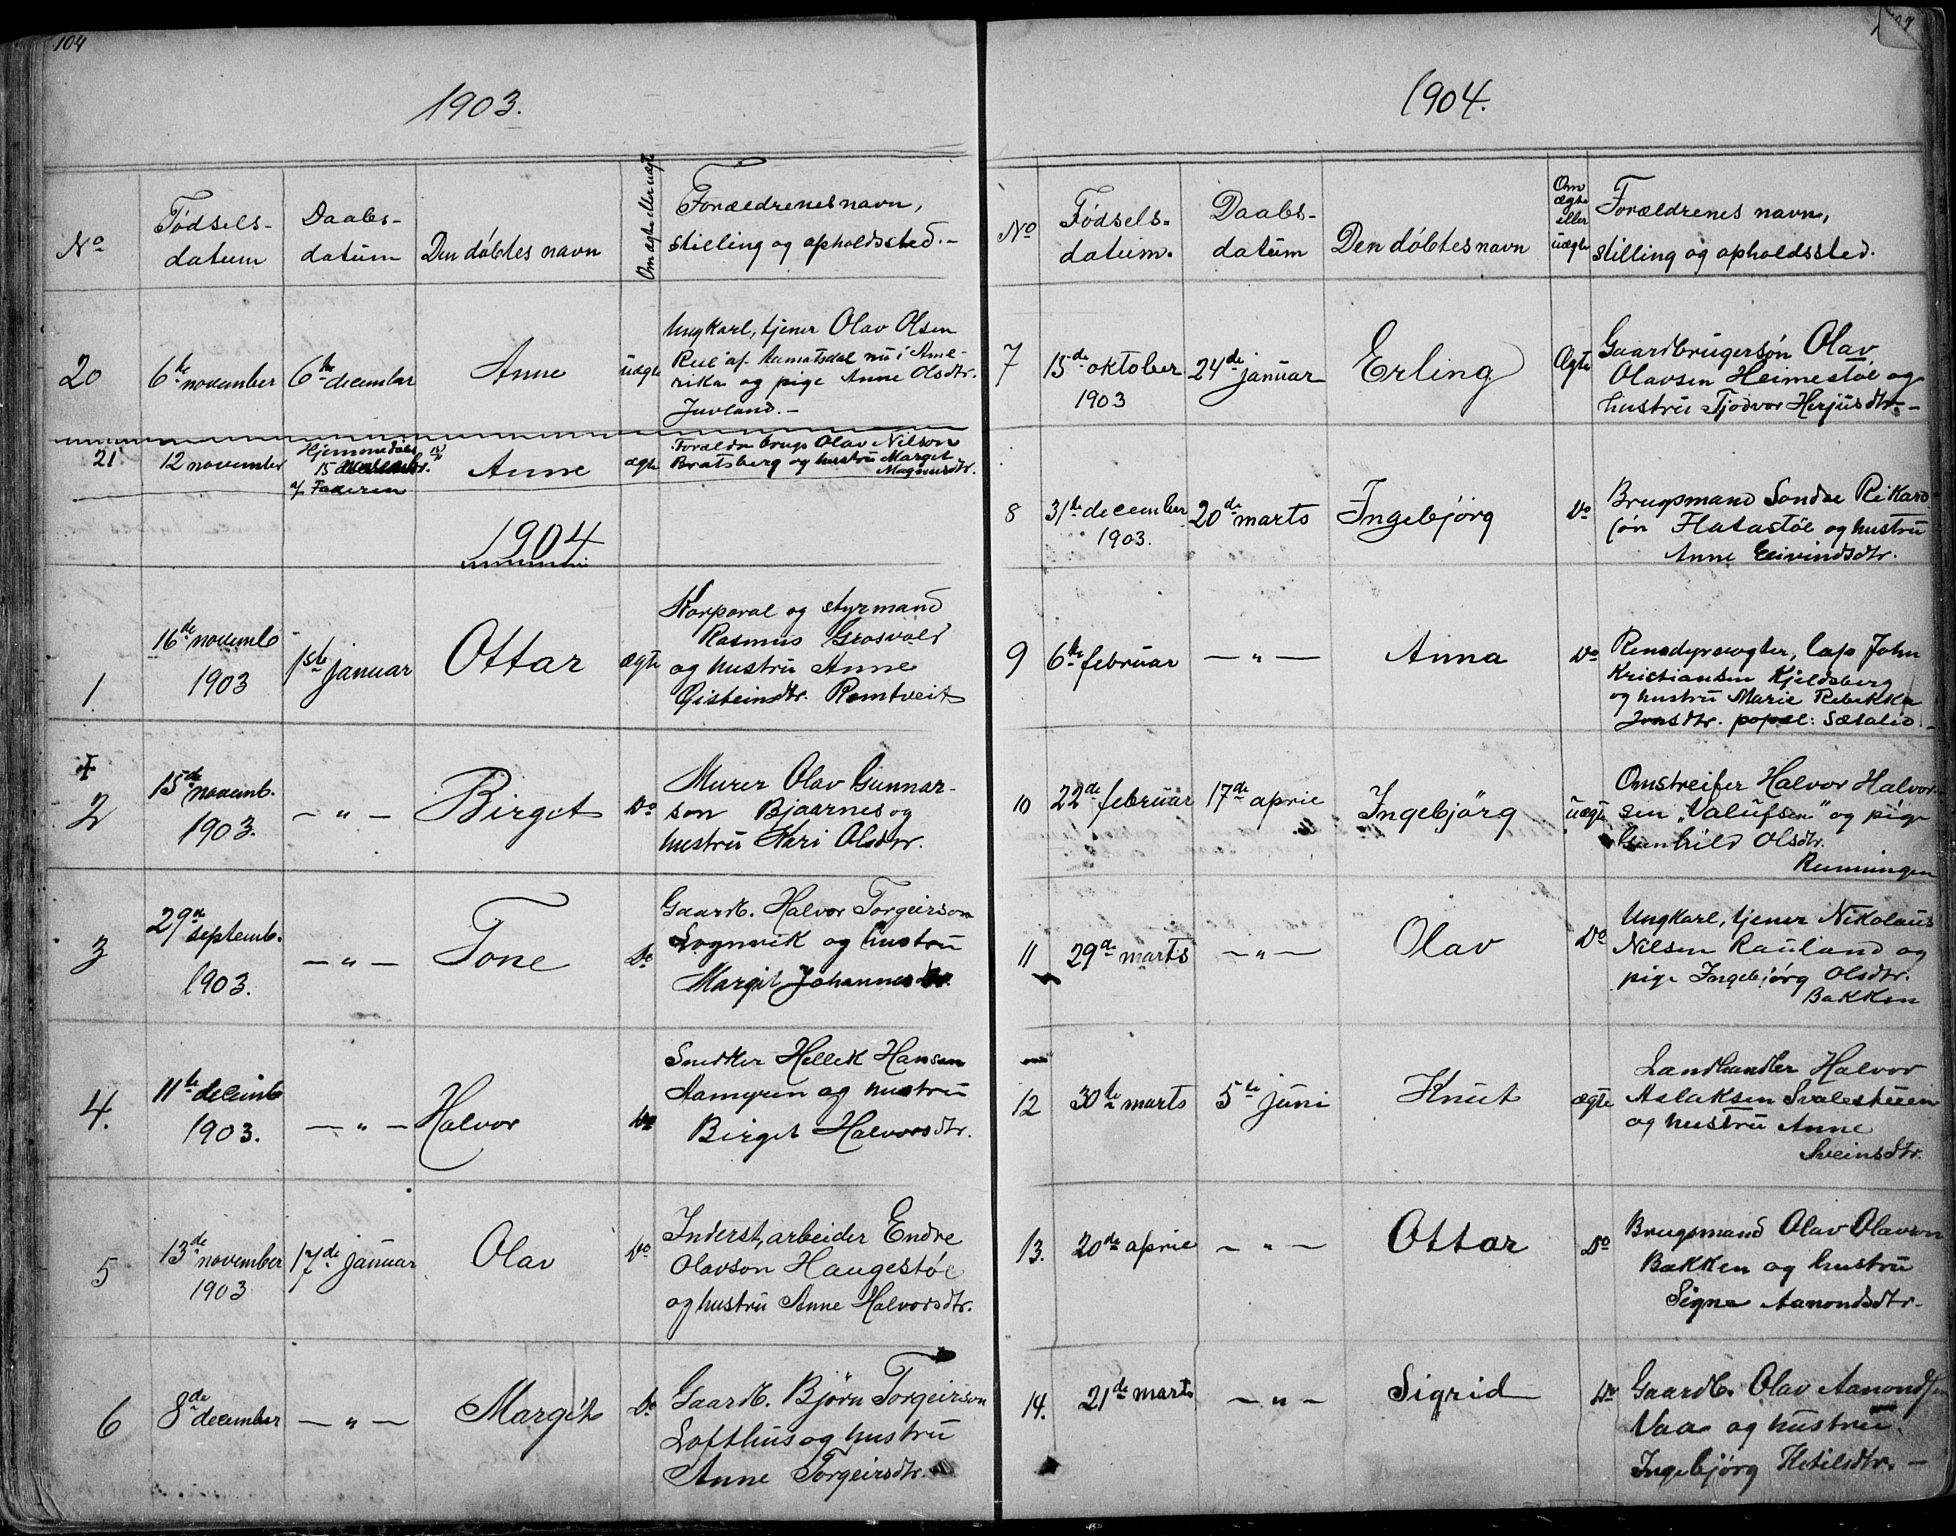 104
1903.
No
Fødsels-
datum
Daabs-
datum
Den døbtes navn
Om ægte eller uægte
Forældrenes navn,
stilling og opholdssted.-
20
6te november
6te december
Anne
uægte
Ungkarl, tjener Olav Olsen
af Aamotsdal nu i Ame-
rika og pige Anne Olsdtr.
Juvland.-
21
12 november
Hjemmedøbt
15 december
af Faderen
Anne
ægte
Forældre brugs Olav Nilson
Bratsberg og hustru Marget
Magnusdtr.
1904
1
16de novemb
1903
1ste januar
Ottar
ægte
Korporal og styrmand
Rasmus Grosvold
og hustru Anne
Gisteinsdtr. Romtveit
2
15de novemb.
1903.
— " —
Birget
Do
Murer Olav Gunnar-
son Bjaarnes og
hustru Kari Olsdtr.
3
29de septemb.
1903.
— " —
Tone
Do
Gaardb. Halvor Torgeirson
Lognvik og hustru
Margit Johannesdtr.
4.
11te decemb
1903.
— " —
Halvor
Do
Snedker Hellek Hansen
Aamyren og hustru
Birget Halvorsdtr.
5
13de november
1903
17de januar
Olav
Do
Inderst, arbeider Endre
Olavson Haugestøl
og hustru Anne Halvorsdtr.
6
8de december
— " —
Margit
Do
Gaardb. Bjørn Torgeirson
Lofthus og hustru
Anne Torgeirsdtr.
1904.
No
Fødsels-
datum.
Daabs-
datum
Den døbtes navn
Om
ægte
eller
uægte
Forældrenes navn,
stilling og opholdssted.
7
15de oktober
1903
24de januar
Erling
Ægte
Gaardbrugersøn Olav
Olavsen Heimestøl og
hustru Tjodvor Herjusdtr.-
8
31te december
1903.
20de marts
Ingebjørg
Do
Brugsmand Sondre Rikard-
søn Flatastøl og hustru
Anne Eivindsdtr.
9
6te februar
— " —
Anna
Do
Rensdyrvogter, lap John
Kristiansen Kjeldsberg
og hustru Marie Rebekka
Jonsdtr.
10
22de februar
17de april
Ingebjørg
uægte
Omstreifer Halvor Halvor-
sen „Valufsen" og pige
Gunhild Olsdtr.
Runningen
11
29de marts
— " —
Olav
Do
Ungkarl, tjener Nikolaus
Nilsen Rauland og
pige Ingebjørg Olsdtr.
Bakken
12
30te marts
5te juni
Knut
ægte
Landhandler Halvor
Aslaksen Svalestuen
og hustru Anne
Sveinsdtr.
13.
20de april
— " —
Ottar
Do
Brugsmand Olav Olavson
Bakken og hustru
Signe Aanondsdtr.
14.
21de marts
— " —
Sigrid
Do
Gaardb. Olav Aanondsen
Vaa og hustru
Ingebjørg Ketilsdtr.-